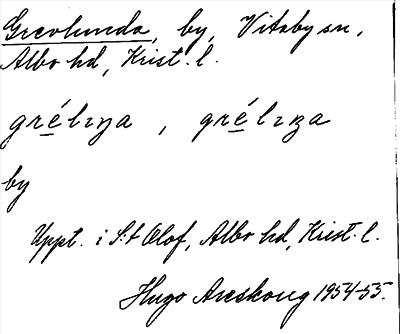 Grevlunda, by, Vitaby sn,
Albo hd, Krist. l.
gré̲lıŋa, gré̲lıʒa
by
Uppt. i S:t Olof, Albo hd, Krist. l.
Hugo Areskoug 1954-55.